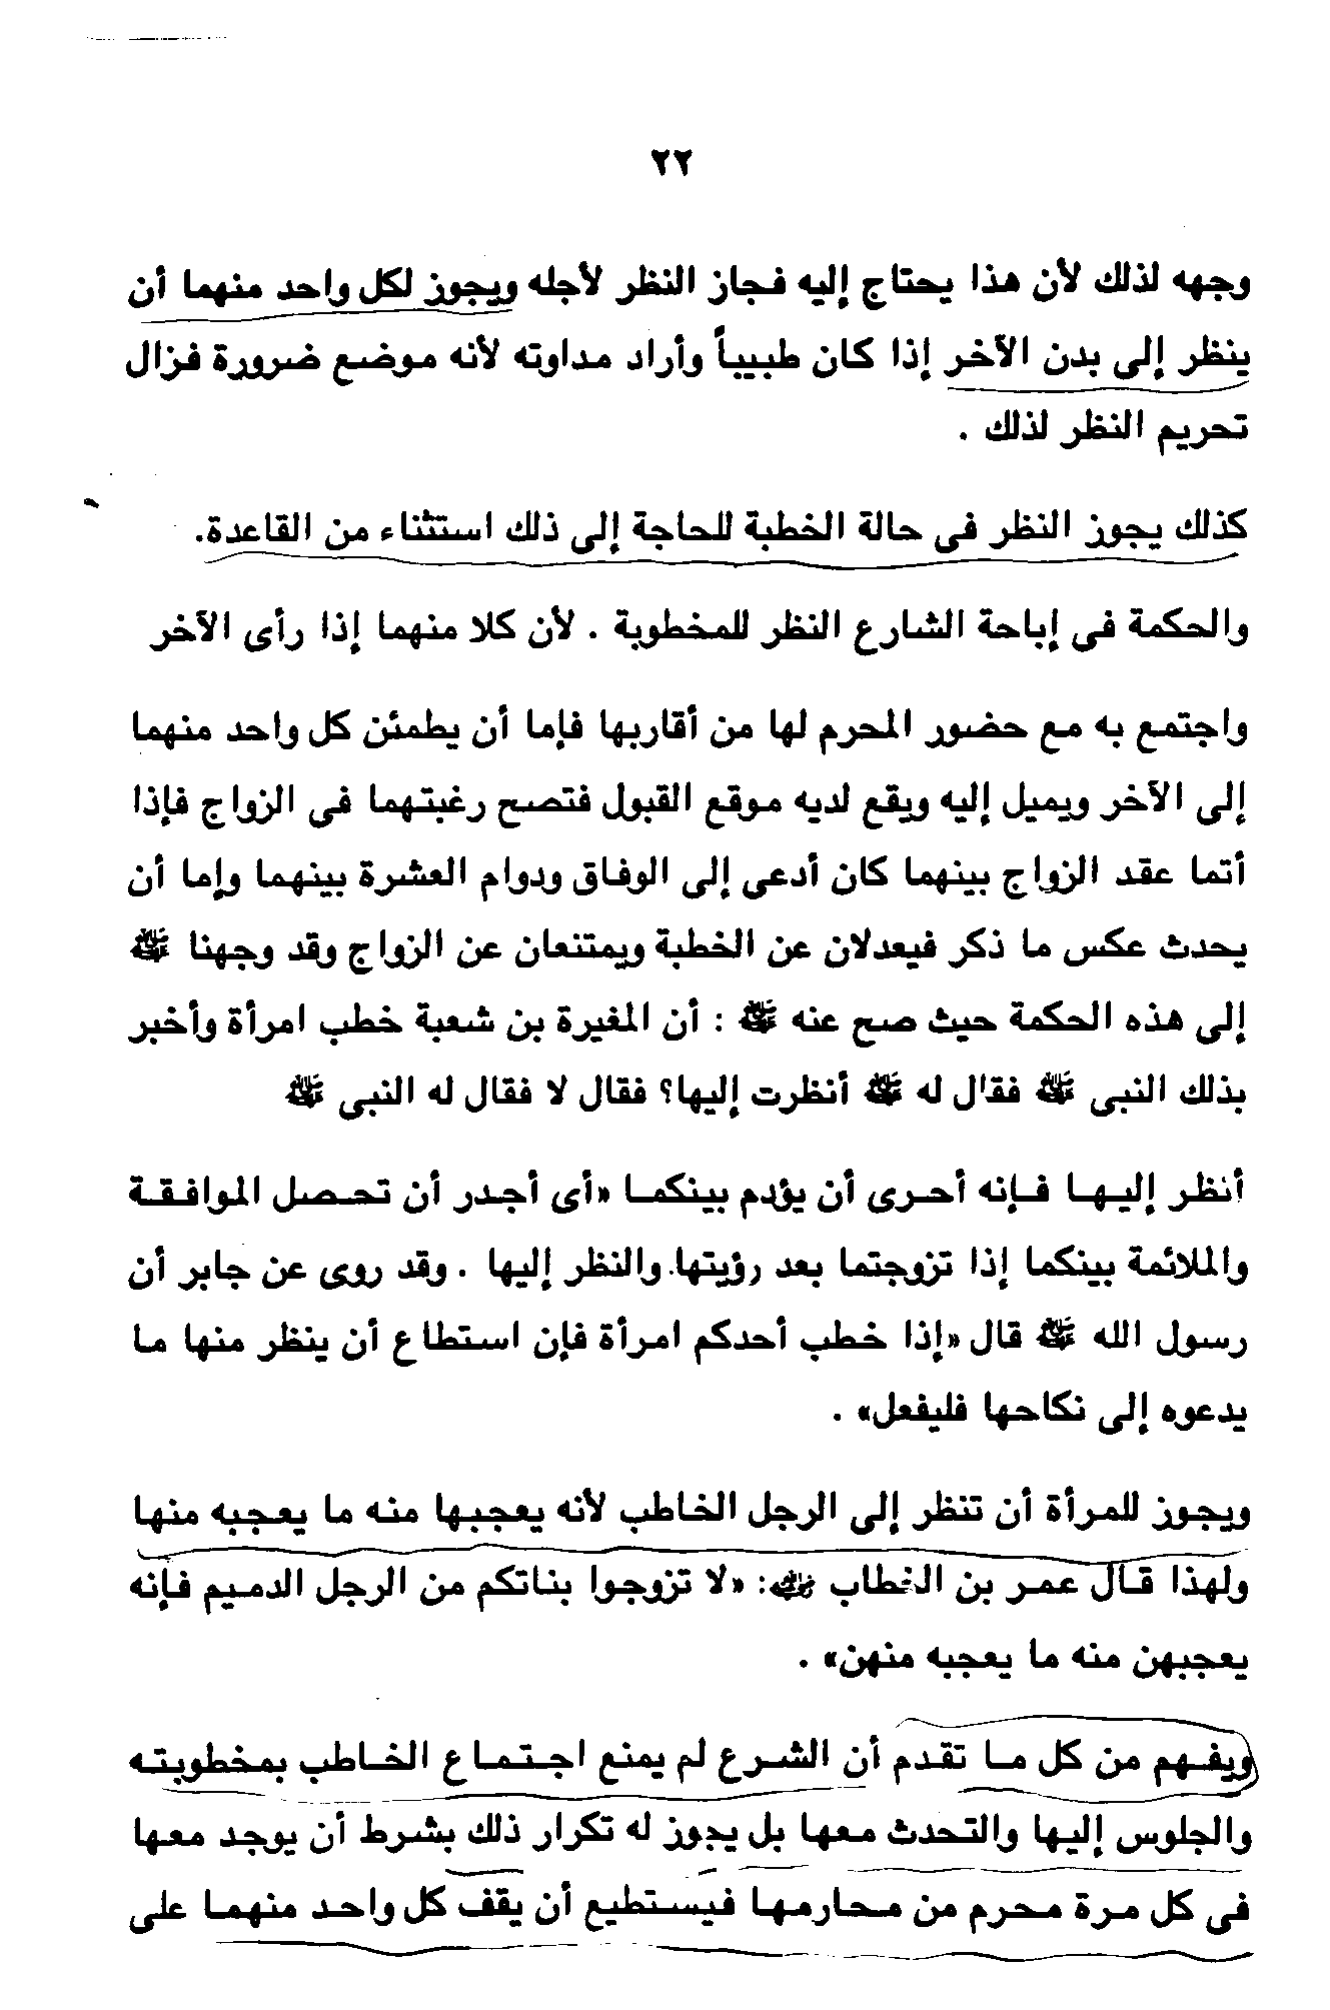 ٢٢
وجهه لذلك لأن هذا يحتاج إليه فجاز النظر لأجله ويجوز لكل واحد منهما أن
ينظر إلى بدن الآخر إذا كان طبيباً وأراد مداوته لأنه موضع ضرورة فزال
تحريم النظر لذلك .
كذلك يجوز النظر فى حالة الخطبة للحاجة إلى ذلك استثناء من القاعدة.
والحكمة فى إباحة الشارع النظر للمخطوبة . لأن كلا منهما إذا رأى الآخر
واجتمع به مع حضور المحرم لها من أقاربها فإما أن يطمئن كل واحد منهما
إلى الآخر ويميل إليه ويقع لديه موقع القبول فتصح رغبتهما فى الزواج فإذا
أتما عقد الزواج بينهما كان أدعى إلى الوفاق ودوام العشرة بينهما وإما أن
يحدث عكس ما ذكر فيعدلان عن الخطبة ويمتنعان عن الزواج وقد وجهنا ﷺ
إلى هذه الحكمة حيث صح عنه ﷺ : أن المغيرة بن شعبة خطب امرأة وأخبر
بذلك النبى ﷺ فقال له ﷺ أنظرت إليها؟ فقال لا فقال له النبى ﷺ
أنظر إليها فإنه أحرى أن يؤدم بينكما «أى أجدر أن تحصل الموافقة
والملائمة بينكما إذا تزوجتما بعد رؤيتها والنظر إليها . وقد روى عن جابر أن
رسول الله ﷺ قال «إذا خطب أحدكم امرأة فإن استطاع أن ينظر منها ما
يدعوه إلى نكاحها فليفعل» .
ويجوز للمرأة أن تنظر إلى الرجل الخاطب لأنه يعجبها منه ما يعجبه منها
ولهذا قال عمر بن الخطاب رضي الله عنه: «لا تزوجوا بناتكم من الرجل الدميم فإنه
يعجبهن منه ما يعجبه منهن» .
ويفهم من كل ما تقدم أن الشرع لم يمنع اجتماع الخاطب بمخطوبته
والجلوس إليها والتحدث معها بل يجوز له تكرار ذلك بشرط أن يوجد معها
فى كل مرة محرم من محارمها فيستطيع أن يقف كل واحد منهما على